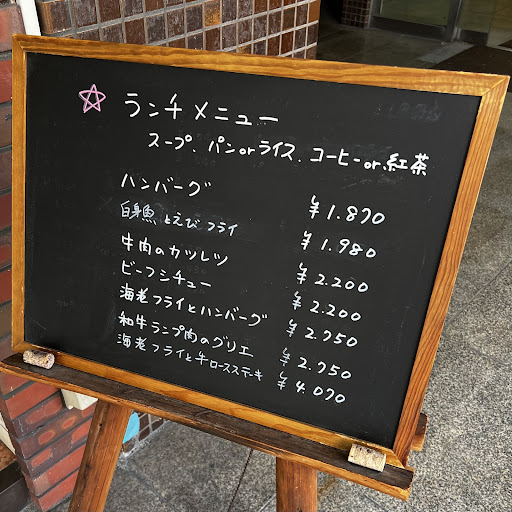 ☆ ランチメニュー
スープ、パンorライス、コーヒーor紅茶
ハンバーグ ¥1.870
白身魚とえびフライ ¥1.980
牛肉のカツレツ ¥2.200
ビーフシチュー ¥2.200
海老フライとハンバーグ ¥2.750
和牛ランプ肉のグリエ ¥2.750
海老フライと牛ロースステーキ ¥4.070